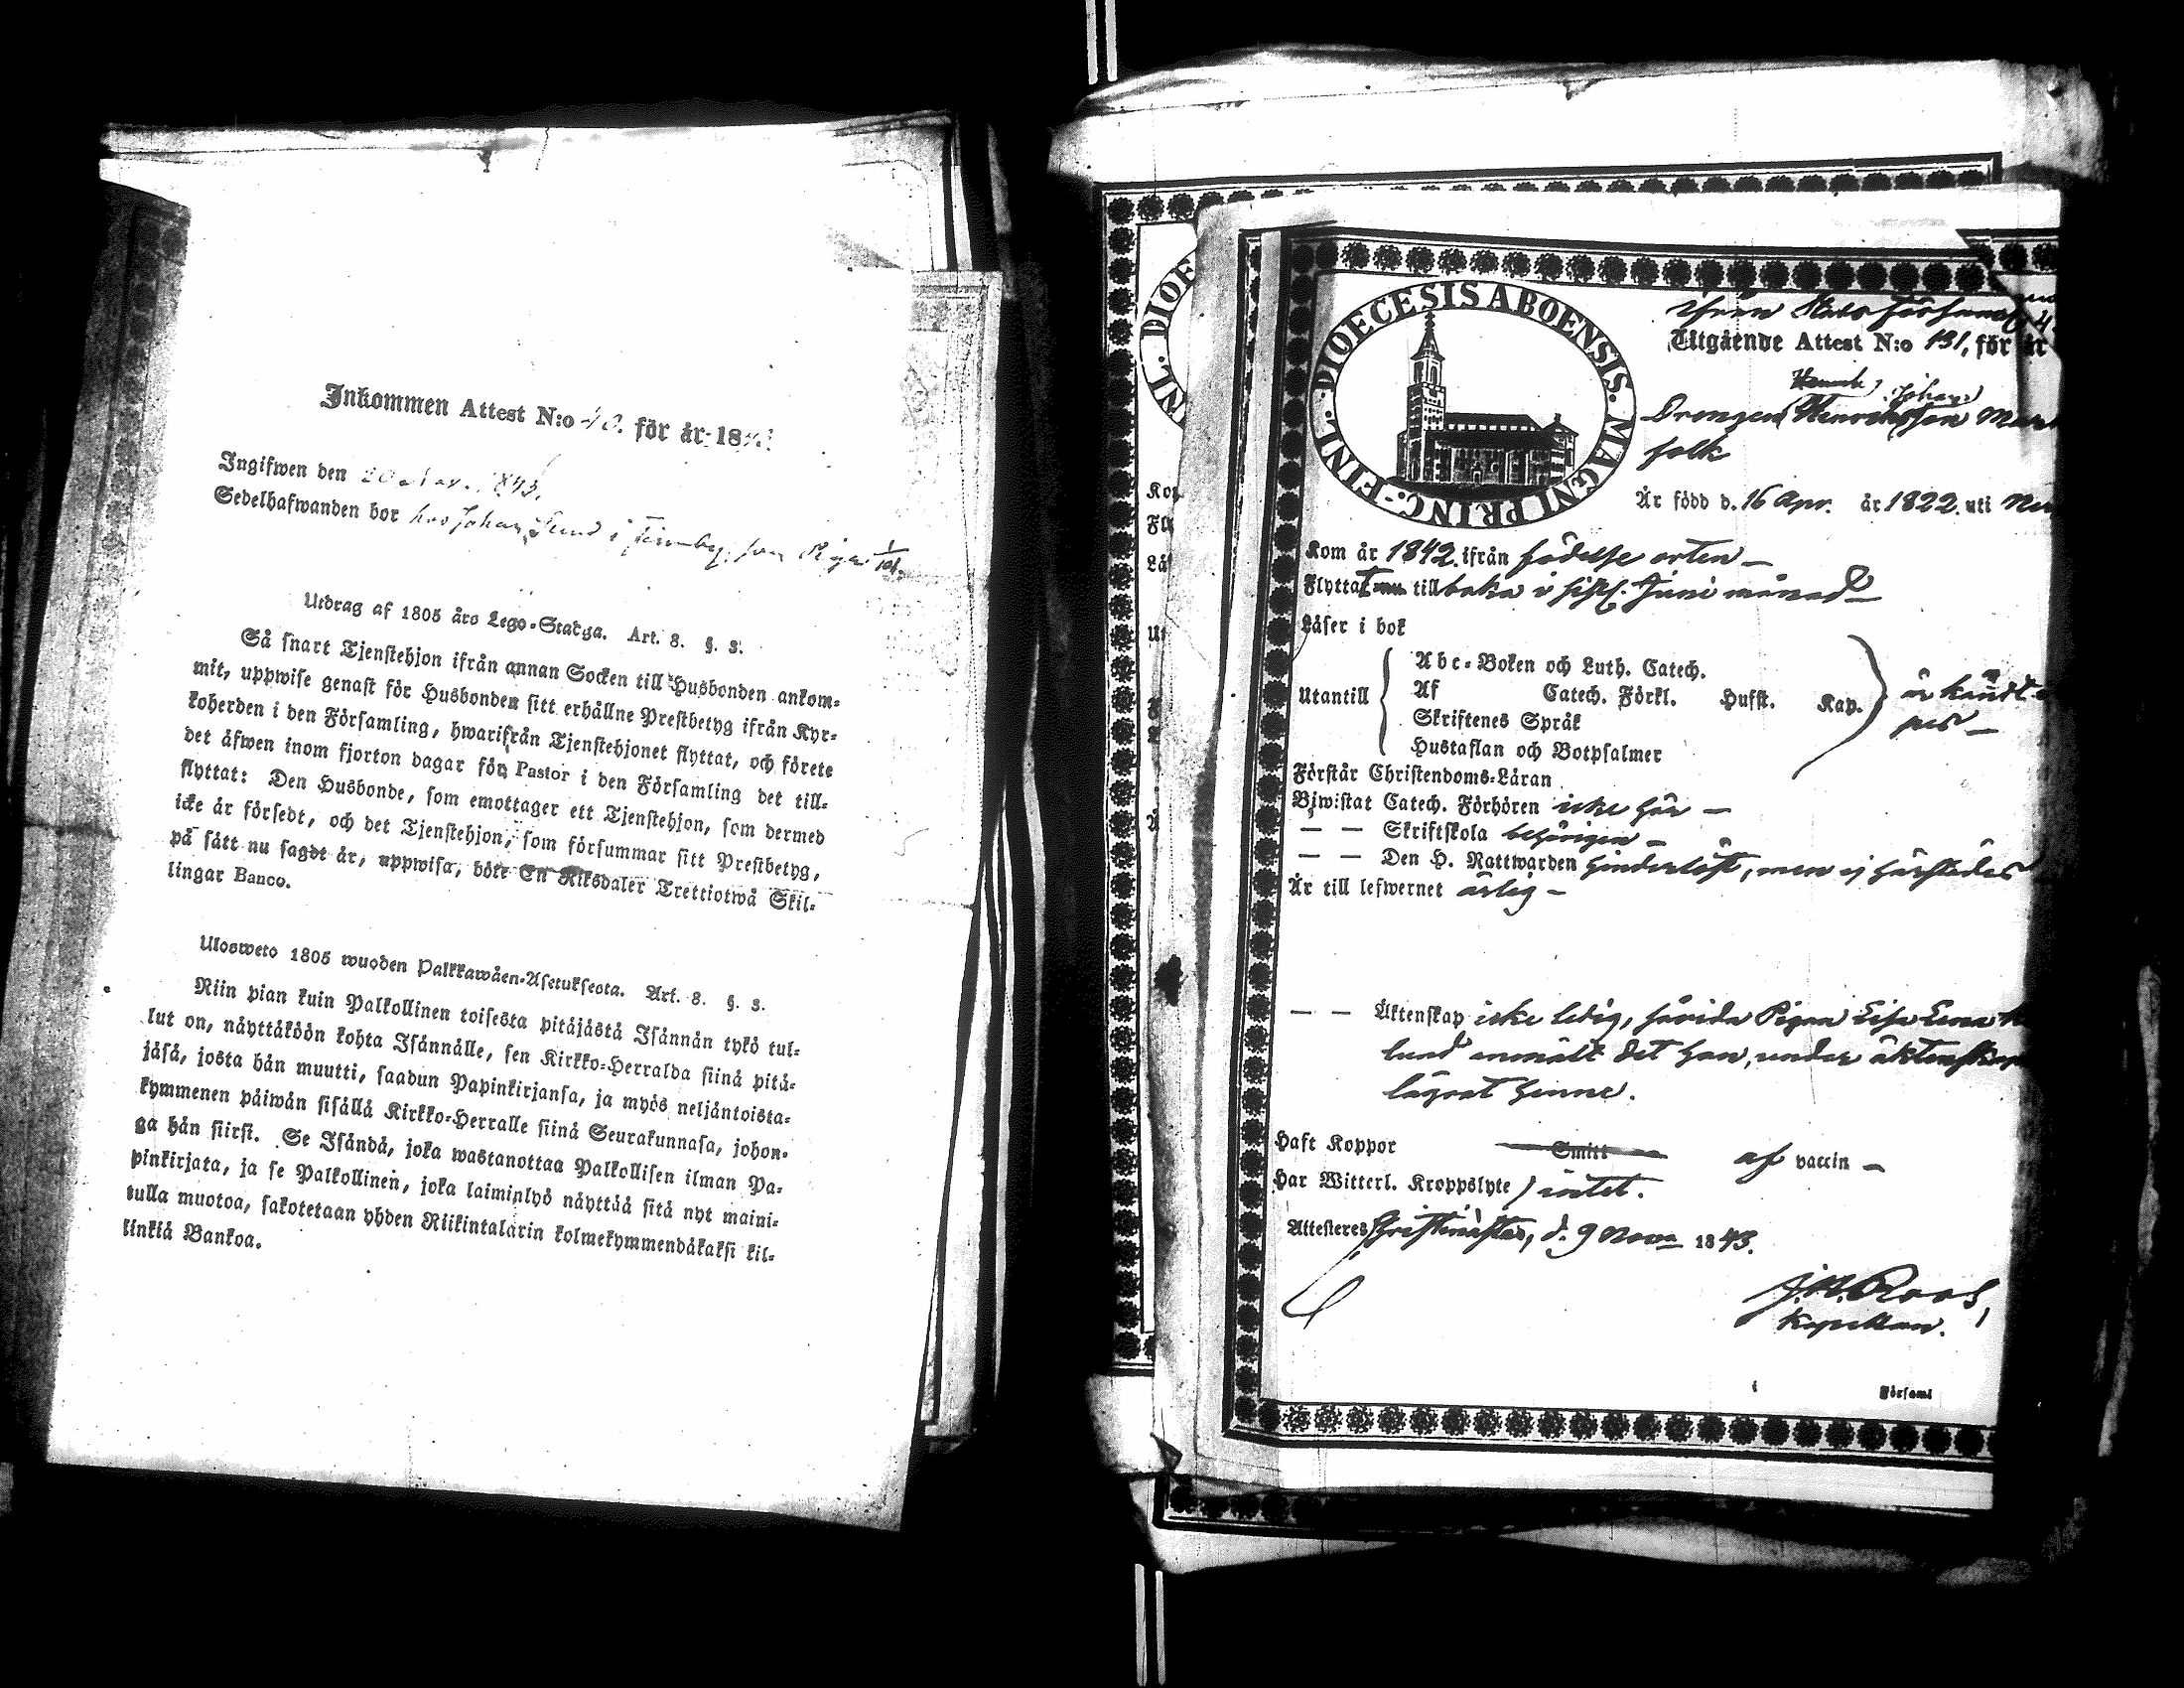 Inkommen Attest N:o 40. för år 1843
Ingifwen den 20 Nov. 1843.
Sedelhafwanden bor hos Johan Lund i
Utdrag af 1805 års Lego-Stadga. Art. 8. §. 3.
Så snart Tjenstehjon ifrån annan Socken till Husbonden ankom-
mit, uppwise genast för Husbonden sitt erhållne Prestbetyg ifrån Kyr-
koherden i den Församling, hwarifrån Tjenstehjonet flyttat, och förete
det äfwen inom fjorton dagar för Pastor i den Församling det till-
flyttat: Den Husbonde, som emottager ett Tjenstehjon, som dermed
icke är försedt, och det Tjenstehjon, som försummar sitt Prestbetyg,
på sätt nu sagdt är, uppwisa, böte En Riksdaler Trettiotwå Skil-
lingar Banco.
Ulosweto 1805 wuoden Palkkawäen-Asetuksesta. Art. 8. §. 3.
Niin pian kuin Palkollinen toisesta pitäjästä Isännän tykö tul-
lut on, näyttäköön kohta Isännälle, sen Kirkko-Herralda siinä pitä-
jäsä, josta hän muutti, saadun Papinkirjansa, ja myös neljäntoista-
kymmenen päiwän sisällä Kirkko-Herralle siinä Seurakunnasa, johon-
ga hän siirsi. Se Isändä, joka wastanottaa Palkollisen ilman Pa-
pinkirjata, ja se Palkollinen, joka laiminlyö näyttää sitä nyt maini-
tulla muotoa, sakotetaan yhden Riikintalarin kolmekymmendäkaksi kil-
linkiä Bankoa.
FINL. DIOECESIS ABOENSIS. MAGNI PRINC.
Utgående Attest N:o 131, för år
Henrik Johan
Drengen
folk
Är född d. 16 Apr. år 1822. uti
Kom år 1842. ifrån födelse orten —
Flyttat tillbaka i sistl. Juni månad —
Läser i bok
Utantill
Abc-Boken och Luth. Catech.
Af Catech. Förkl. Hufst. Kap.
Skriftenes Språk
Hustaflan och Botpsalmer
är kändt
Förstår Christendoms-Läran
Bjwistat Catech. Förhören icke här —
— — Skriftskola behörigen —
— — Den H. Nattwarden hinderlöst, men ej härstädes
Är till lefwernet ärlig —
— — Äktenskap icke ledig, såvida Pigan Lisa Lena
lund anmält det han, under äktenskaps
lägrat henne.
Haft Koppor Smitt af vaccin —
Har Witterl. Kroppslyte intet.
Attesteres Christinestad, d. 9 Novem 1843.
J. N. Roos,
Kapellan.
i Församl